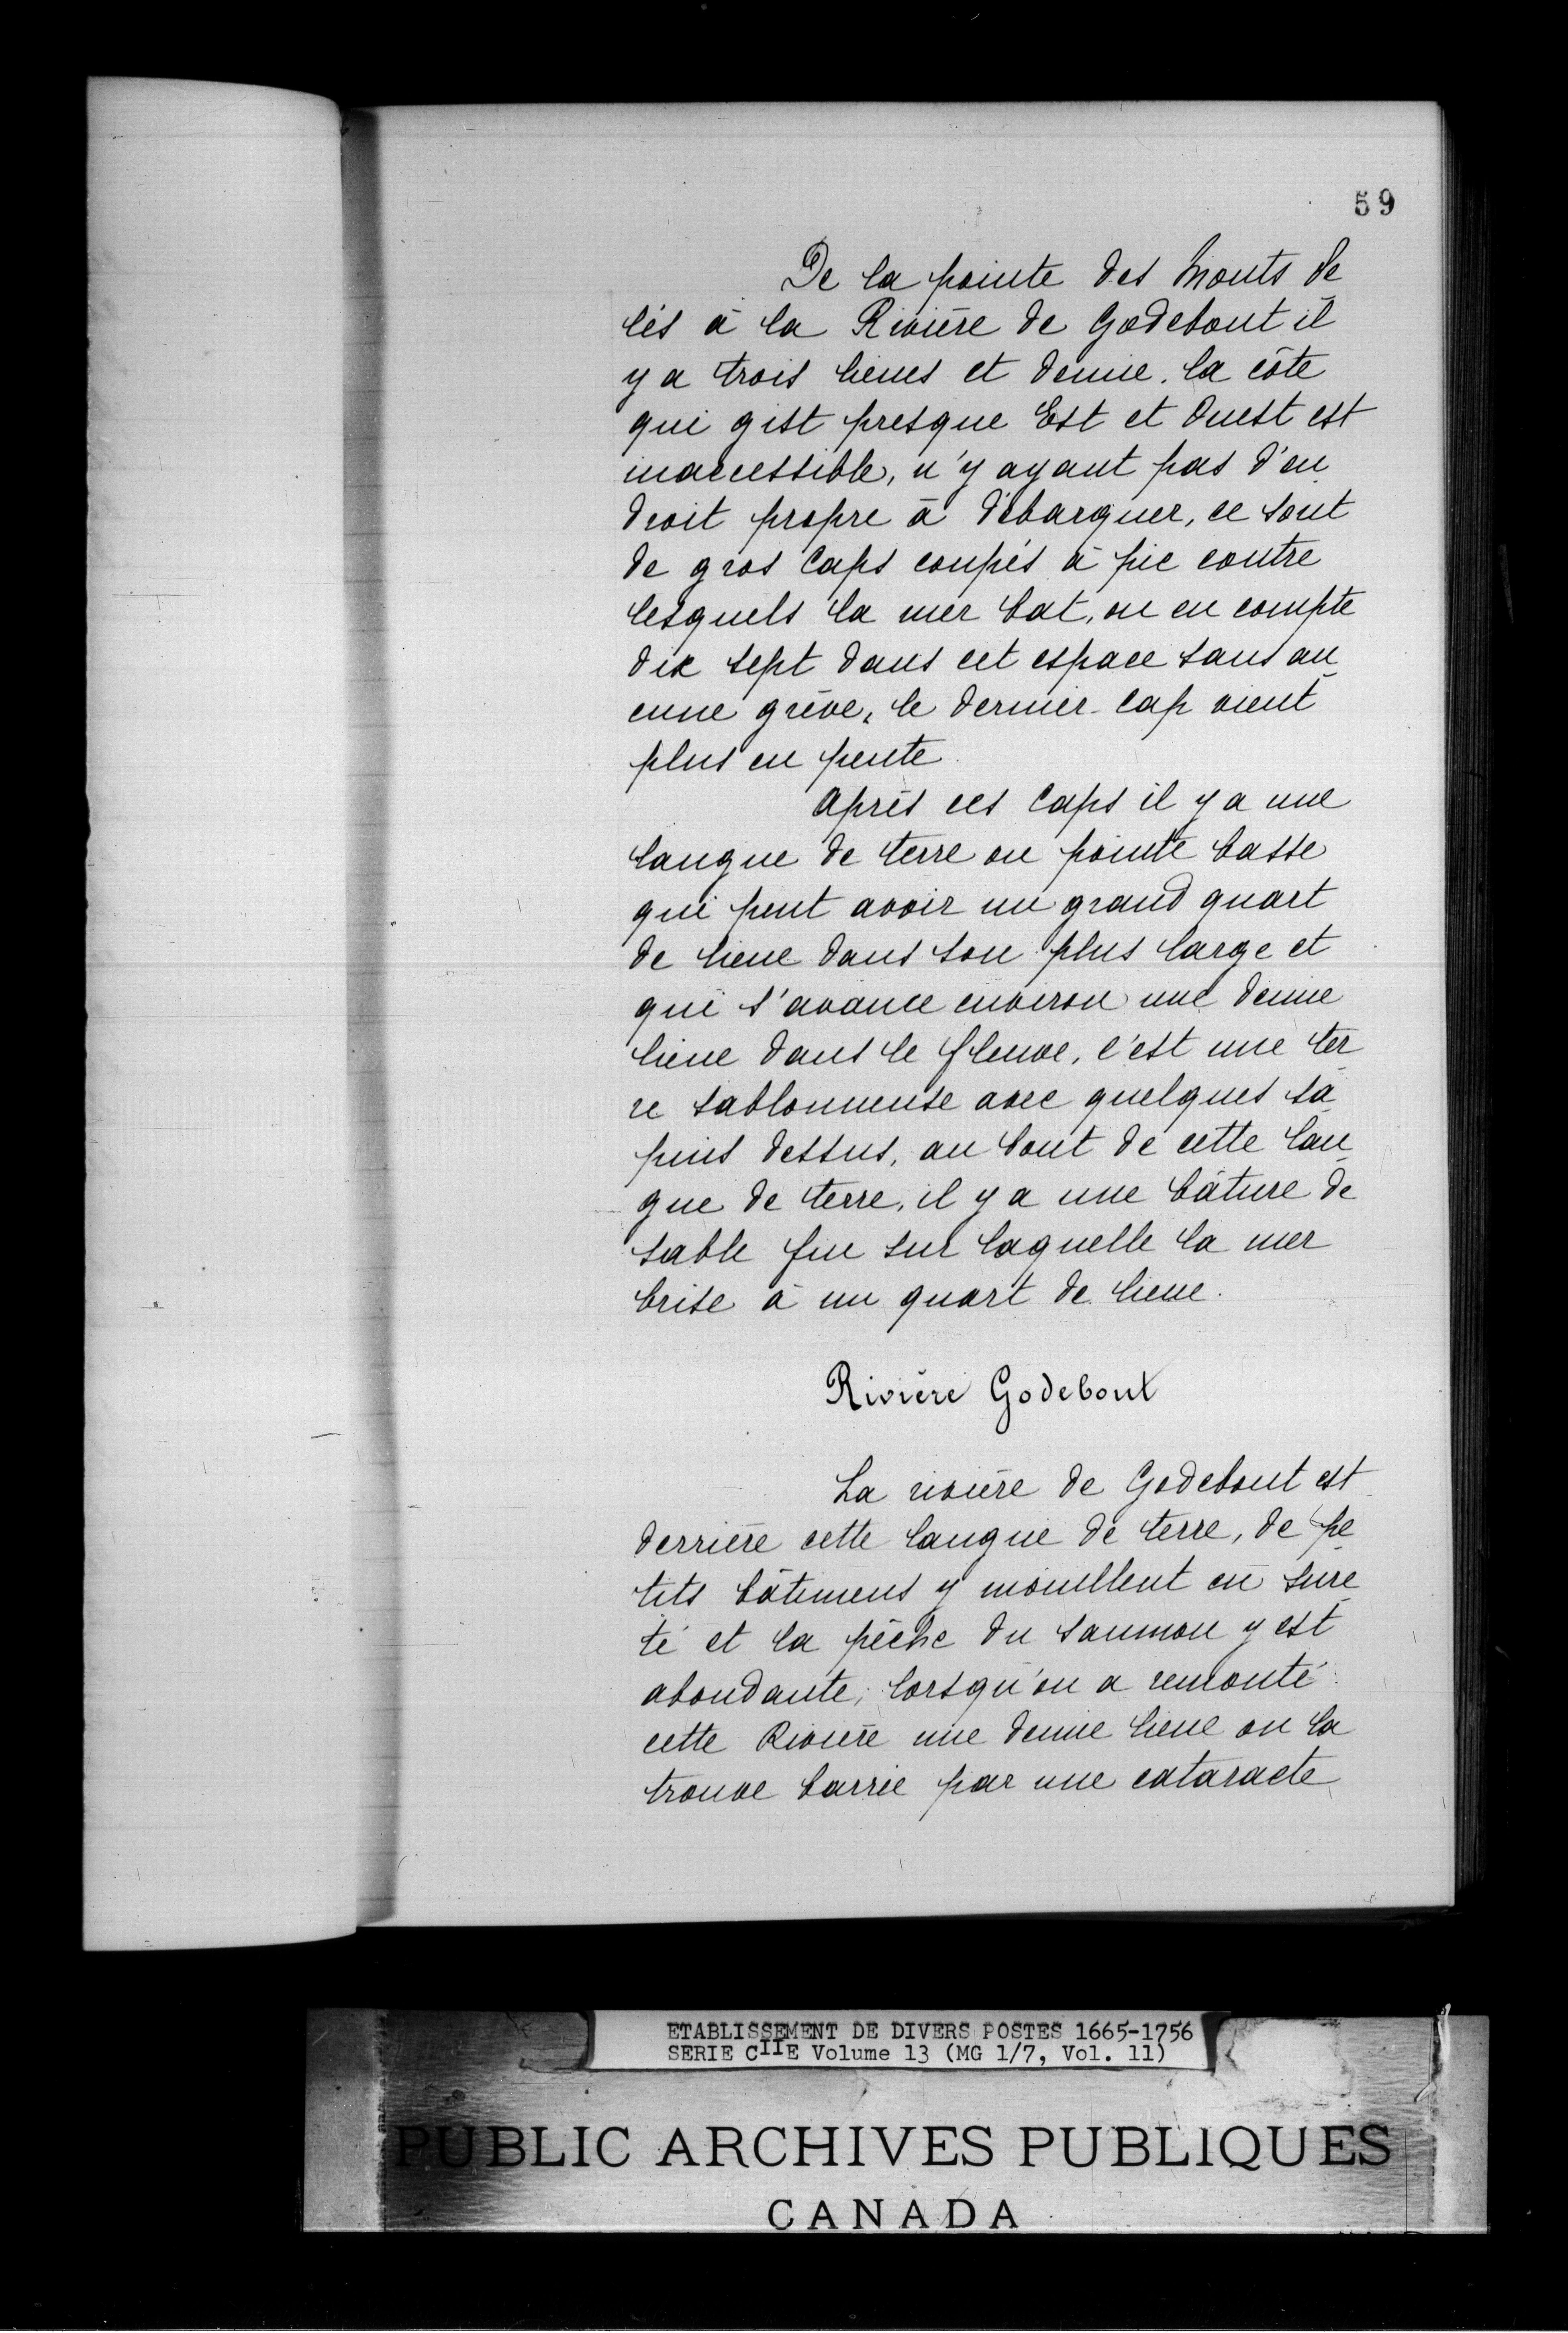 59
De la pointe des Monts de
lés à la Rivière de Godebout il
y a trois lieues et demie. la côte
qui gist presque Est et Ouest est
inaccessible, n'y ayant pas d'en
droit propre à débarquer, ce sont
de gros Caps coupés à pic contre
lesquels la mer bat, on en compte
dix sept dans cet espace sans au
cune grève, le dernier Cap vient
plus en pente.
Après ces Caps il y a une
langue de terre ou pointe basse
qui peut avoir un grand quart
de lieue dans son plus large et
qui s'avance environ une demie
lieue dans le fleuve, c'est une ter
re sablonneuse avec quelques sa
pins dessus, au bout de cette lan
gue de terre, il y a une bâture de
sable fin sur laquelle la mer
brise à un quart de lieue.
Rivière Godebout
La rivière de Godebout est
derrière cette langue de terre, de pe
tits bâtimens y mouillent en sure
té et la pêche du saumon y est
abondante; lorsqu'on a remonté
cette Rivière une demie lieue on la
trouve barrée par une cataracte
ETABLISSEMENT DE DIVERS POSTES 1665-1756
SERIE CIIE Volume 13 (MG 1/7, Vol. 11)
PUBLIC ARCHIVES PUBLIQUES
CANADA